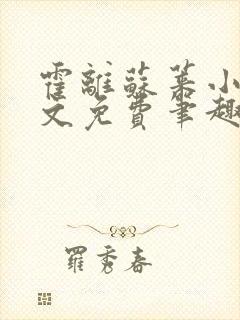 霍離蘇慕小
文免費筆趣
羅秀春